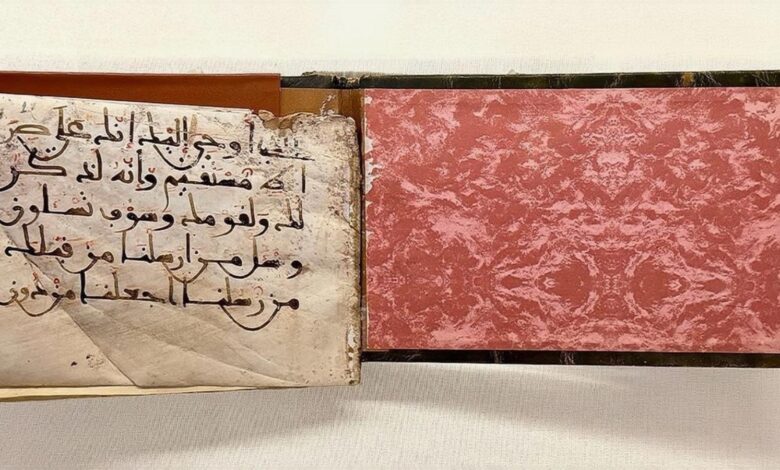 اوحي اليك انك علي صر
اط مستقيم وانه لذكر
لك ولقومك وسوف تسلون
وسل من ارسلنا من قبلك
من رسلنا اجعلنا من دون